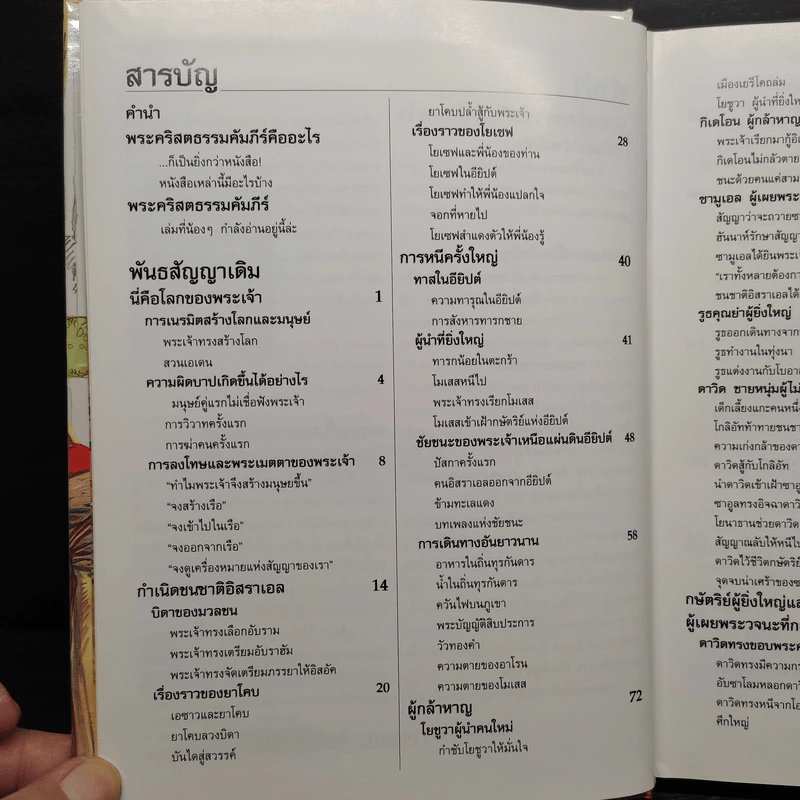 สารบัญ
คำนำ
พระคริสตธรรมคัมภีร์คืออะไร
...ก็เป็นยิ่งกว่าหนังสือ!
หนังสือเหล่านี้มีอะไรบ้าง
พระคริสตธรรมคัมภีร์
เล่มที่น้องๆ กำลังอ่านอยู่นี้ล่ะ
พันธสัญญาเดิม
นี่คือโลกของพระเจ้า 1
การเนรมิตสร้างโลกและมนุษย์
พระเจ้าทรงสร้างโลก
สวนเอเดน
ความผิดบาปเกิดขึ้นได้อย่างไร 4
มนุษย์คู่แรกไม่เชื่อฟังพระเจ้า
การวิวาทครั้งแรก
การฆ่าคนครั้งแรก
การลงโทษและพระเมตตาของพระเจ้า 8
"ทำไมพระเจ้าจึงสร้างมนุษย์ขึ้น"
"จงสร้างเรือ"
"จงเข้าไปในเรือ"
"จงออกจากเรือ"
"จงดูเครื่องหมายแห่งสัญญาของเรา"
กำเนิดชนชาติอิสราเอล 14
บิดาของมวลชน
พระเจ้าทรงเลือกอับราม
พระเจ้าทรงเตรียมอับราฮัม
พระเจ้าทรงจัดเตรียมภรรยาให้อิสอัค
เรื่องราวของยาโคบ 20
เอซาวและยาโคบ
ยาโคบลวงบิดา
บันไดสู่สวรรค์
ยาโคบปล้ำสู้กับพระเจ้า
เรื่องราวของโยเซฟ 28
โยเซฟและพี่น้องของท่าน
โยเซฟในอียิปต์
โยเซฟทำให้พี่น้องแปลกใจ
จอกที่หายไป
โยเซฟสำแดงตัวให้พี่น้องรู้
การหนีครั้งใหญ่ 40
ทาสในอียิปต์
ความทารุณในอียิปต์
การสังหารทารกชาย
ผู้นำที่ยิ่งใหญ่ 41
ทารกน้อยในตะกร้า
โมเสสหนีไป
พระเจ้าทรงเรียกโมเสส
โมเสสเข้าเฝ้ากษัตริย์แห่งอียิปต์
ชัยชนะของพระเจ้าเหนือแผ่นดินอียิปต์ 48
ปัสกาครั้งแรก
คนอิสราเอลออกจากอียิปต์
ข้ามทะเลแดง
บทเพลงแห่งชัยชนะ
การเดินทางอันยาวนาน 58
อาหารในถิ่นทุรกันดาร
น้ำในถิ่นทุรกันดาร
ควันไฟบนภูเขา
พระบัญญัติสิบประการ
วัวทองคำ
ความตายของอาโรน
ความตายของโมเสส
ผู้กล้าหาญ 72
โยชูวาผู้นำคนใหม่
กำชับโยชูวาให้มั่นใจ
เมืองเยรีโคถล่ม
โยชูวา ผู้นำที่ยิ่งให
กิเดโอน ผู้กล้าหาญ
พระเจ้าเรียกมากู้อิ
กิเดโอนไม่กลัวตาย
ชนะด้วยคนแค่สาม
ซามูเอล ผู้เผยพระ
สัญญาว่าจะถวายซา
ฮันนาห์รักษาสัญญา
ซามูเอลได้ยินพระเจ
"เราทั้งหลายต้องกา
ชนชาติอิสราเอลได้
รูธคุณย่าผู้ยิ่งใหญ่
รูธออกเดินทางจาก
รูธทำงานในทุ่งนา
รูธแต่งงานกับโบอา
ดาวิด ชายหนุ่มผู้ไม่
เด็กเลี้ยงแกะคนหนึ่ง
โกลิอัทท้าทายชนชา
ความเก่งกล้าของดา
ดาวิดสู้กับโกลิอัท
นำดาวิดเข้าเฝ้าซาอู
ซาอูลทรงอิจฉาดาวิ
โยนาธานช่วยดาวิด
สัญญาณลับให้หนีไป
ดาวิดไว้ชีวิตกษัตริย์
จุดจบน่าเศร้าของซ
กษัตริย์ผู้ยิ่งใหญ่และ
ผู้เผยพระวจนะที่ก
ดาวิดทรงขอบพระค
ดาวิดทรงมีความกร
อับซาโลมหลอกดาวิ
ดาวิดทรงหนีจากโอ
ศึกใหญ่